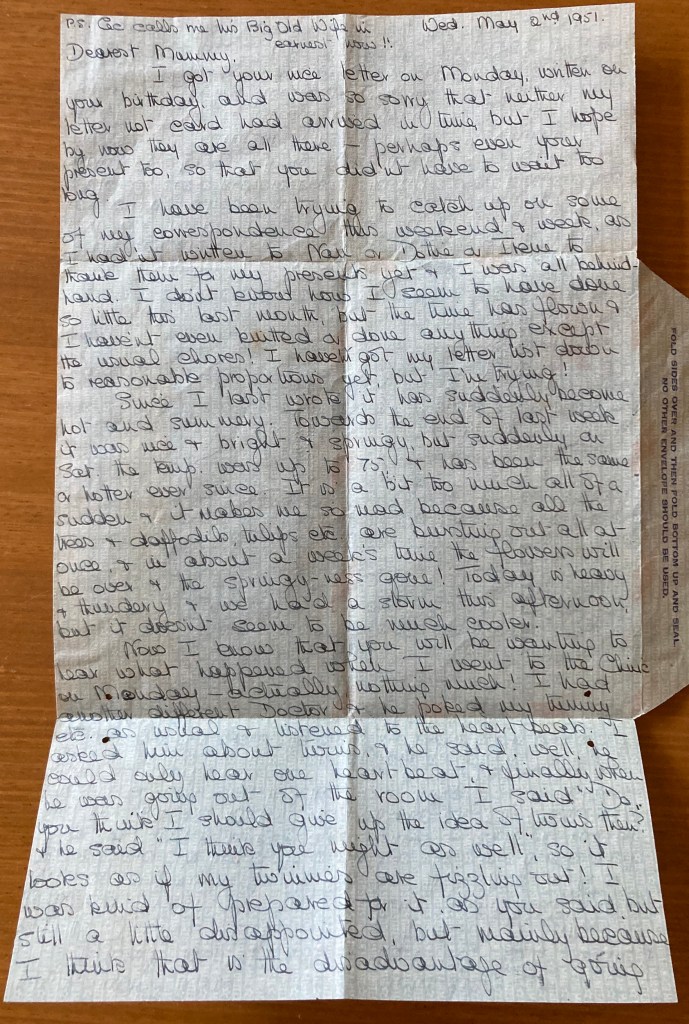 P.S. Cec calls me his Big Old Wife in
earnest now!!
Wed. May 2nd 1951.
Dearest Mummy,
I got your nice letter on Monday, written on
your birthday, and was so sorry that neither my
letter not card had arrived in time but I hope
by now they are all there – perhaps even your
present too, so that you didn't have to wait too
long.
I have been trying to catch up on some
of my correspondence this weekend & week, as
I hadn't written to Nan or Dothe or Irene to
thank them for my presents yet & I was all behind-
hand. I don't know how I seem to have done
so little this last month, but the time has flown &
I haven't even knitted or done anything except
the usual chores! I haven't got my letter list down
to reasonable proportions yet, but I'm trying!
Since I last wrote it has suddenly become
hot and summery. Towards the end of last week
it was nice & bright & springy but suddenly on
Sat. the temp. was up to 75° & has been the same
or hotter ever since. It is a bit too much all of a
sudden & it makes me so mad because all the
trees & daffodils, tulips etc are bursting out all at
once, & in about a week's time the flowers will
be over & the springy-ness gone! Today is heavy
& thundery & we had a storm this afternoon,
but it doesn't seem to be much cooler.
Now I know that you will be wanting to
hear what happened when I went to the Clinic
on Monday – actually nothing much! I had
another different Doctor & he poked my tummy
etc. as usual & listened to the heart beats. I
asked him about twins, & he said, well, he
could only hear one heart beat, & finally when
he was going out of the room I said "Do
you think I should give up the idea of twins then?"
& he said "I think you might as well", so it
looks as if my twinnies are fizzling out! I
was kind of prepared for it, as you said but
still a little disappointed, but mainly because
I think that is the disadvantage of going
FOLD SIDES OVER AND THEN FOLD BOTTOM UP AND SEAL
NO OTHER ENVELOPE SHOULD BE USED.